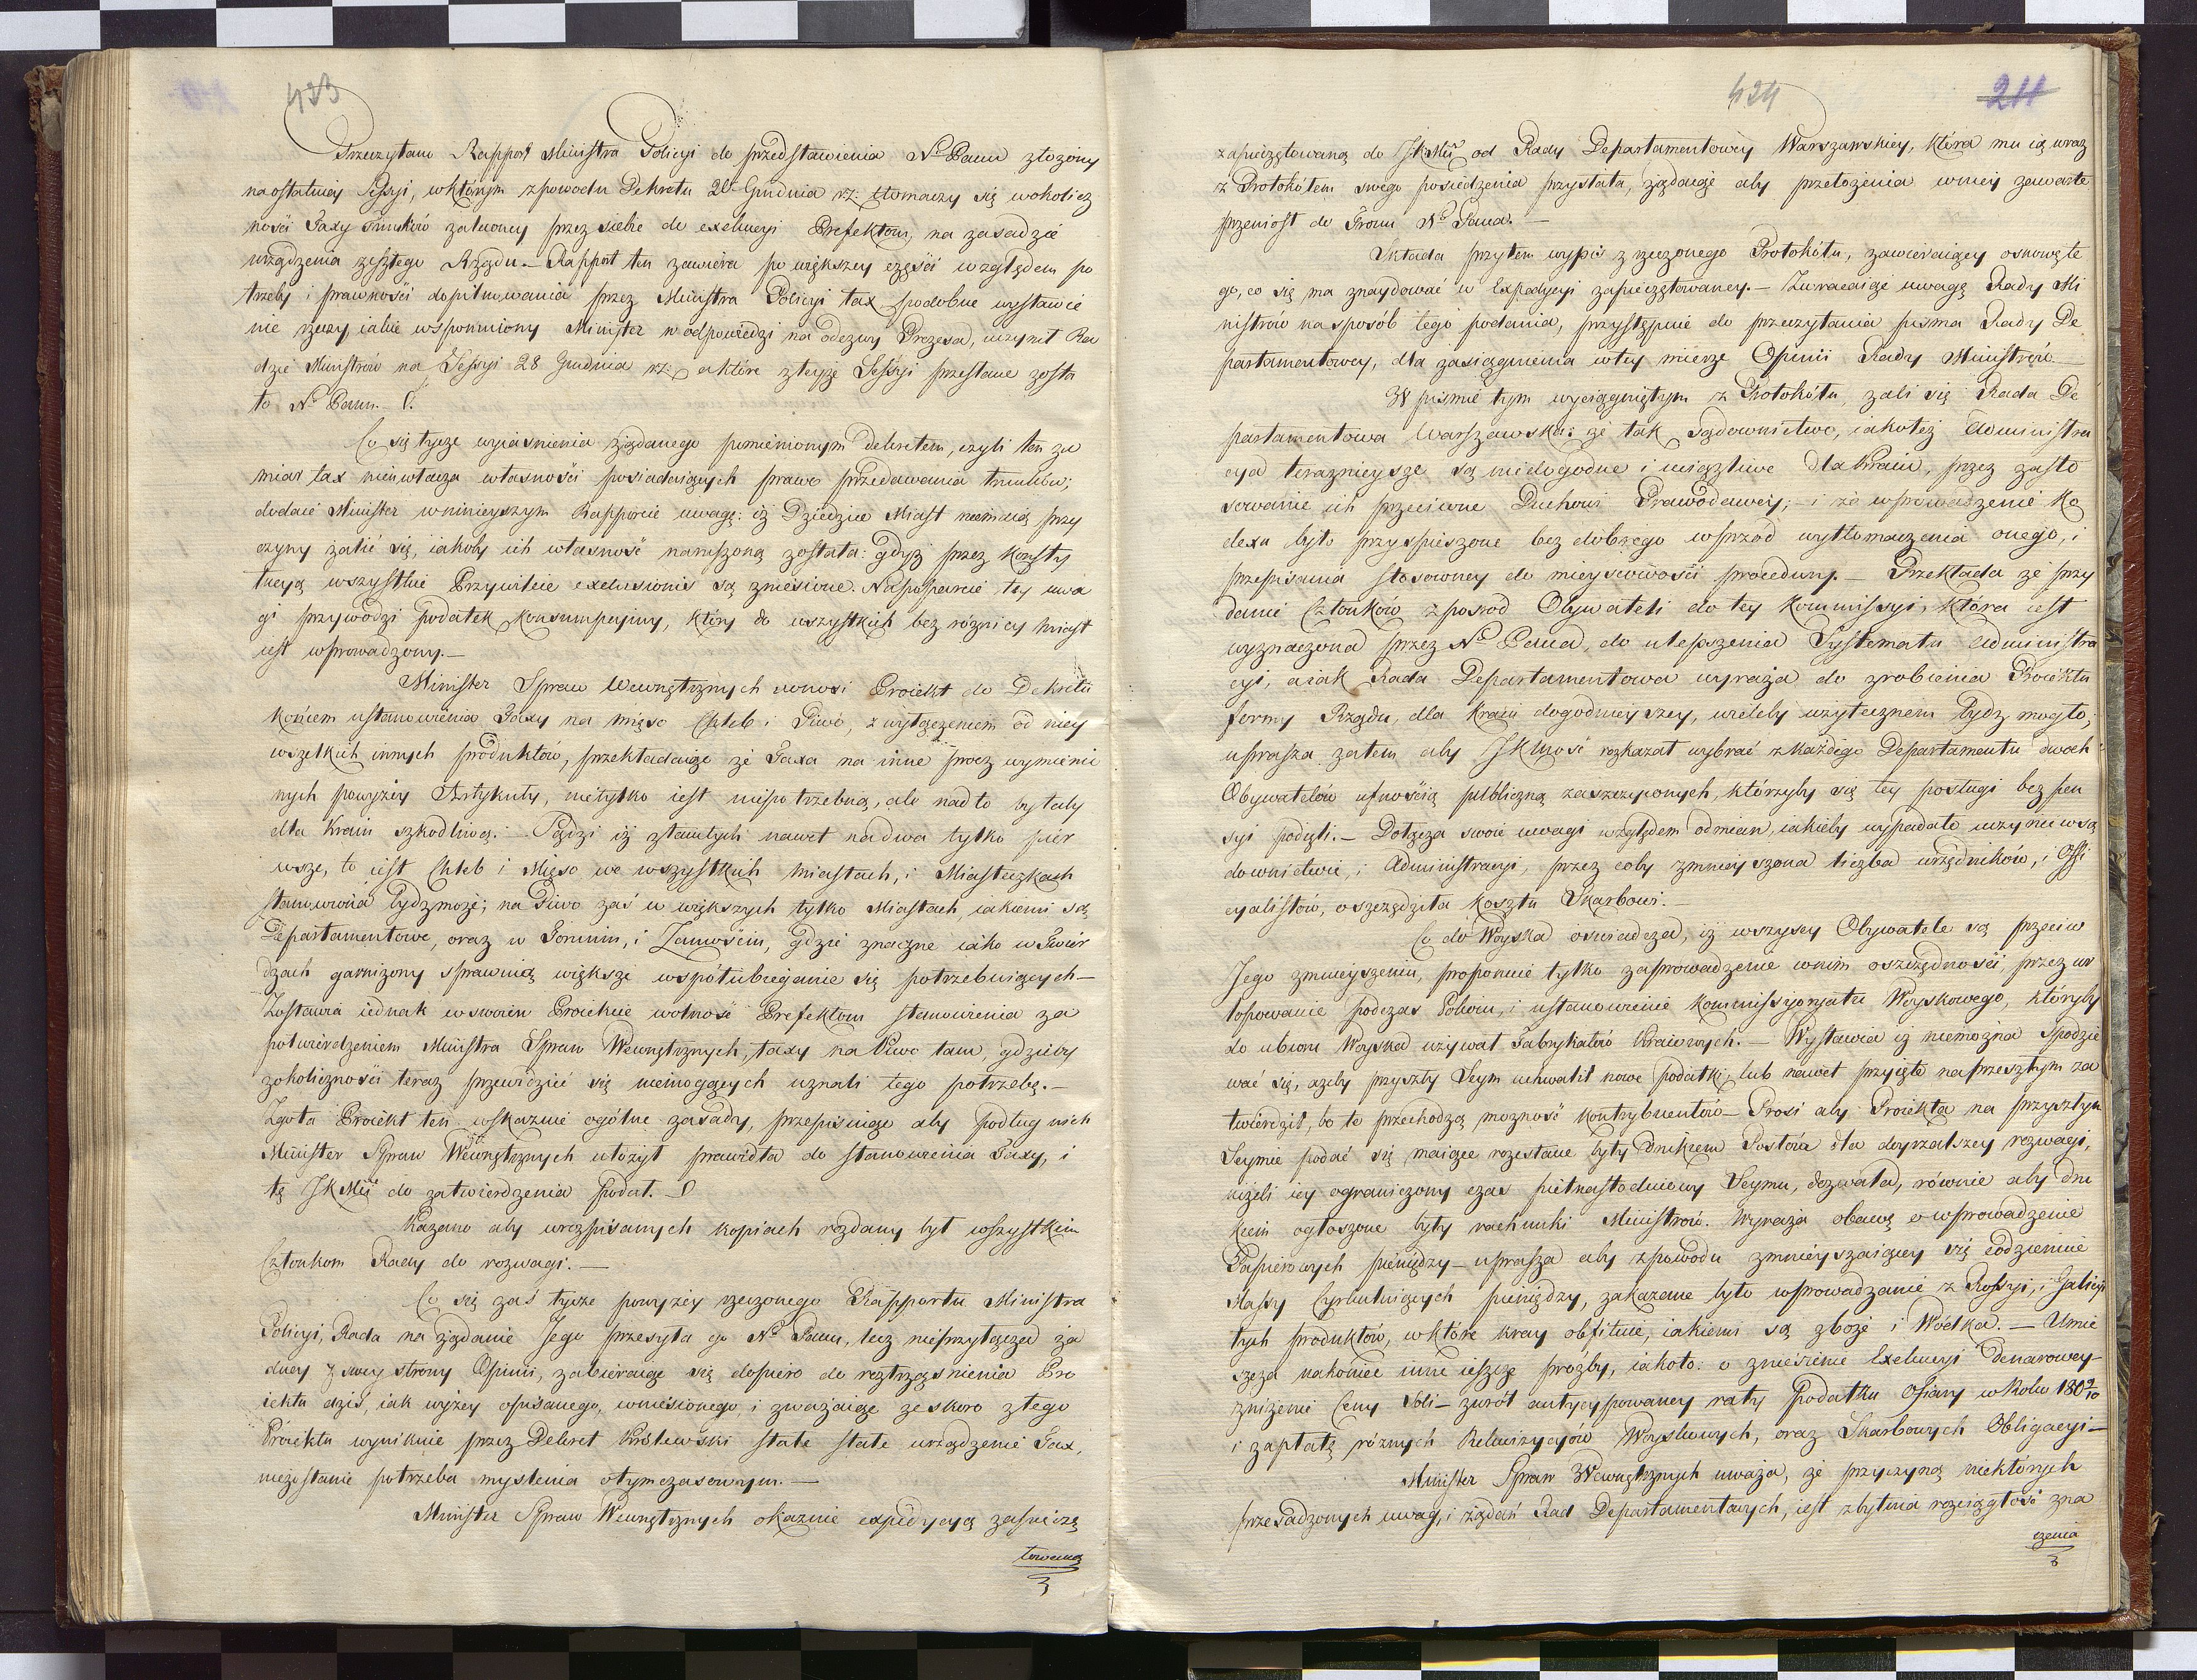 423
Przeczytano Rapport Ministra Policyi do przedstawienia N. Panu złożony
na ostatniey Sessyi, w którym z powodu Dekretu 20 Grudnia r.z: tłomaczy się w okolicz
ności Taxy Trunków zaleconey przez siebie do exekucyi Prefektom, na zasadzie
urządzenia zeszłego Rządu. — Rapport ten zawiera po większey części względem po
trzeby i prawności dopilnowania przez Ministra Policyi tax podobne wystawie
nie rzeczy iakie wspomniony Minister w odpowiedzi na odezwy Prezesa, uczynił Ra
dzie Ministrów na Sessyi 28 Grudnia r.z: a które z teyże Sessyi przesłane zosta
ło N. Panu. —
Co się tycze wyiaśnienia żądanego pomienionym Dekretem, czyli ten za
miar tax nieuwłacza własności posiadaiących prawo przedawania trunków;
dodaie Minister w ninieyszym Rapporcie uwagę: iż Dziedzice Miast niemaią przy
czyny żalić się, iakoby ich własność naruszoną została: gdyż przez Konsty
tucyą wszystkie Przywileie exclusionis są zniesione. Na poparcie tey uwa
gi przywodzi podatek konsumpcyiny, który do wszystkich bez różnicy miast
iest wprowadzony. —
Minister Spraw Wewnętrznych wnosi Proiekt do Dekretu
końcem ustanowienia Taxy na mięso Chleb i Piwo, z wyłączeniem od niey
wszelkich innych produktów, przekładaiąc że Taxa na inne procz wymienio
nych powyżey Artykuły, nietylko iest niepotrzebną, ale nadto byłaby
dla Kraiu szkodliwą. — Sądzi iż z tamtych nawet na dwa tylko pier
wsze, to iest Chleb i Mięso we wszystkich miastach, i Miasteczkach
stanowiona bydź może; na Piwo zaś w większych tylko Miastach, iakiemi są
Departamentowe, oraz w Toruniu, i Zamościu, gdzie znaczne iako w Twier
dzach garnizony sprawuią większe współubieganie się potrzebuiących —
Zostawia iednak w swoim Proiekcie wolność Prefektom stanowienia za
potwierdzeniem Ministra Spraw Wewnętrznych, taxy na Piwo tam, gdzieby
z okoliczności teraz przewidzieć się niemogących uznali tego potrzebę. —
Zgoła Proiekt ten wskazuie ogólne zasady, przepisuiąc aby podług nich
Minister Spraw Wewnętrznych ułożył prawidła do stanowienia Taxy, i
tę JKMci do zatwierdzenia podał. —
Kazano aby w rozpisanych kopiach rozdany był wszystkim
Członkom Rady do rozwagi. —
Co się zaś tycze powyżey rzeczonego Rapportu Ministra
Policyi, Rada na żądanie Jego przesyła go N. Panu, lecz nieprzyłącza ża
dney z swey strony Opinii, zabieraiąc się dopiero do roztrząśnienia Pro
iektu dziś, iak wyżey opisanego, wniesionego, i zważaiąc że skoro z tego
Proiektu wyniknie przez Dekret Królewski stałe stałe urządzenie Tax,
niezostanie potrzeba myślenia o tymczasowym. —
Minister Spraw Wewnętrznych okazuie expedycyą zapieczę
towaną
424
211
zapieczętowaną do JKMci od Rady Departamentowey Warszawskiey, która mu ią wraz
z Protokółem swego posiedzenia przysłała, żądaiąc aby przełożenia w niey zawarte
przeniosł do Tronu N. Pana. —
Składa przytem wypis z rzeczonego Protokółu, zawieraiący osnowę te
go, co się ma znaydować w Expedycyi zapieczętowaney. — Zwracaiąc uwagę Rady Mi
nistrów na sposób tego podania, przystępuie do przeczytania pisma Rady De
partamentowey, dla zasiągnienia w tey mierze Opinii Rady Ministrów —
W pismie tym wyciągniętym z Protokółu, żali się Rada De
partamentowa Warszawska: że tak Sądownictwo, iakoteż Administra
cya terazniejsze są niedogodne i uciążliwe dla Kraiu, przez zasto
sowanie ich przeciwne Duchowi Prawodawcy; — i że wprowadzenie Ko
dexu było przyspieszone bez dobrego wprzod wytłomaczenia onego, i
przepisania stosowney do mieyscowości procedury. — Przekłada że przy
danie Członków z posrod Obywateli do tey Kommissyi, która iest
wyznaczona przez N. Pana, do ulepszenia Systematu Administra
cyi, a iak Rada Departamentowa wyraża do zrobienia Proiektu
formy Rządu, dla Kraiu dogodnieyszey, wieleby użytecznem bydź mogło;
uprasza zatem aby JKMość rozkazał wybrać z każdego Departamentu dwoch
Obywatelów ufnością publiczną zaszczyconych, którzyby się tey posługi bez pen
syi podięli. — Dołącza swoie uwagi względem odmian, iakieby wypadało uczynić w są
downictwie, i Administracyi, przez coby zmnieyszona liczba urzędników, i Offi
cyalistów, oszczędziła kosztu Skarbowi. —
Co do Woyska oswiadcza, iż wszyscy Obywatele są przeciw
Jego zmnieyszeniu, proponuie tylko zaprowadzenie w nim oszczędności, przez ur
lopowanie podczas Pokoiu, i ustanowienie Kommissyoryatu Woyskowego, któryby
do ubioru Woyska używał Fabrykatów Kraiowych. — Wystawia iż niemożna spodzie
wać się, ażeby przyszły Seym uchwalił nowe podatki, lub nawet przyięte na przeszłym za
twierdził, bo te przechodzą możność kontrybuentów — Prosi aby Proiekta na przyszłym
Seymie podać się maiące rozesłane były drukiem Posłom dla doyrzalszey rozwagi,
niżeli iey ograniczony czas piętnastodniowy Seymu, dozwala, równie aby dru
kiem ogłoszone były rachunki Ministrów. Wyraża obawę o wprowadzenie
Papierowych pieniędzy — uprasza aby z powodu zmnieyszaiącey się codziennie
Massy Cyrkuluiących pieniędzy, zakazane było wprowadzanie z Rossyi, i Galicyi
tych produktów, w które kray obfituie, iakiemi są zboże i Wódka. — Umie
szcza nakoniec inne ieszcze prozby, iakoto: o zniesienie Exekucyi Denarowey —
zniżenie Ceny Soli — zwrót antycypowaney raty Podatku Ofiary w Roku 1809/10
i zapłatę różnych Rekwizycyów Woyskowych, oraz Skarbowych Obligacyi —
Minister Spraw Wewnętrznych uważa, że przyczyną niektórych
przesadzonych uwag, i żądań Rad Departamentowych, iest zbytnia rozciągłość zna
czenia